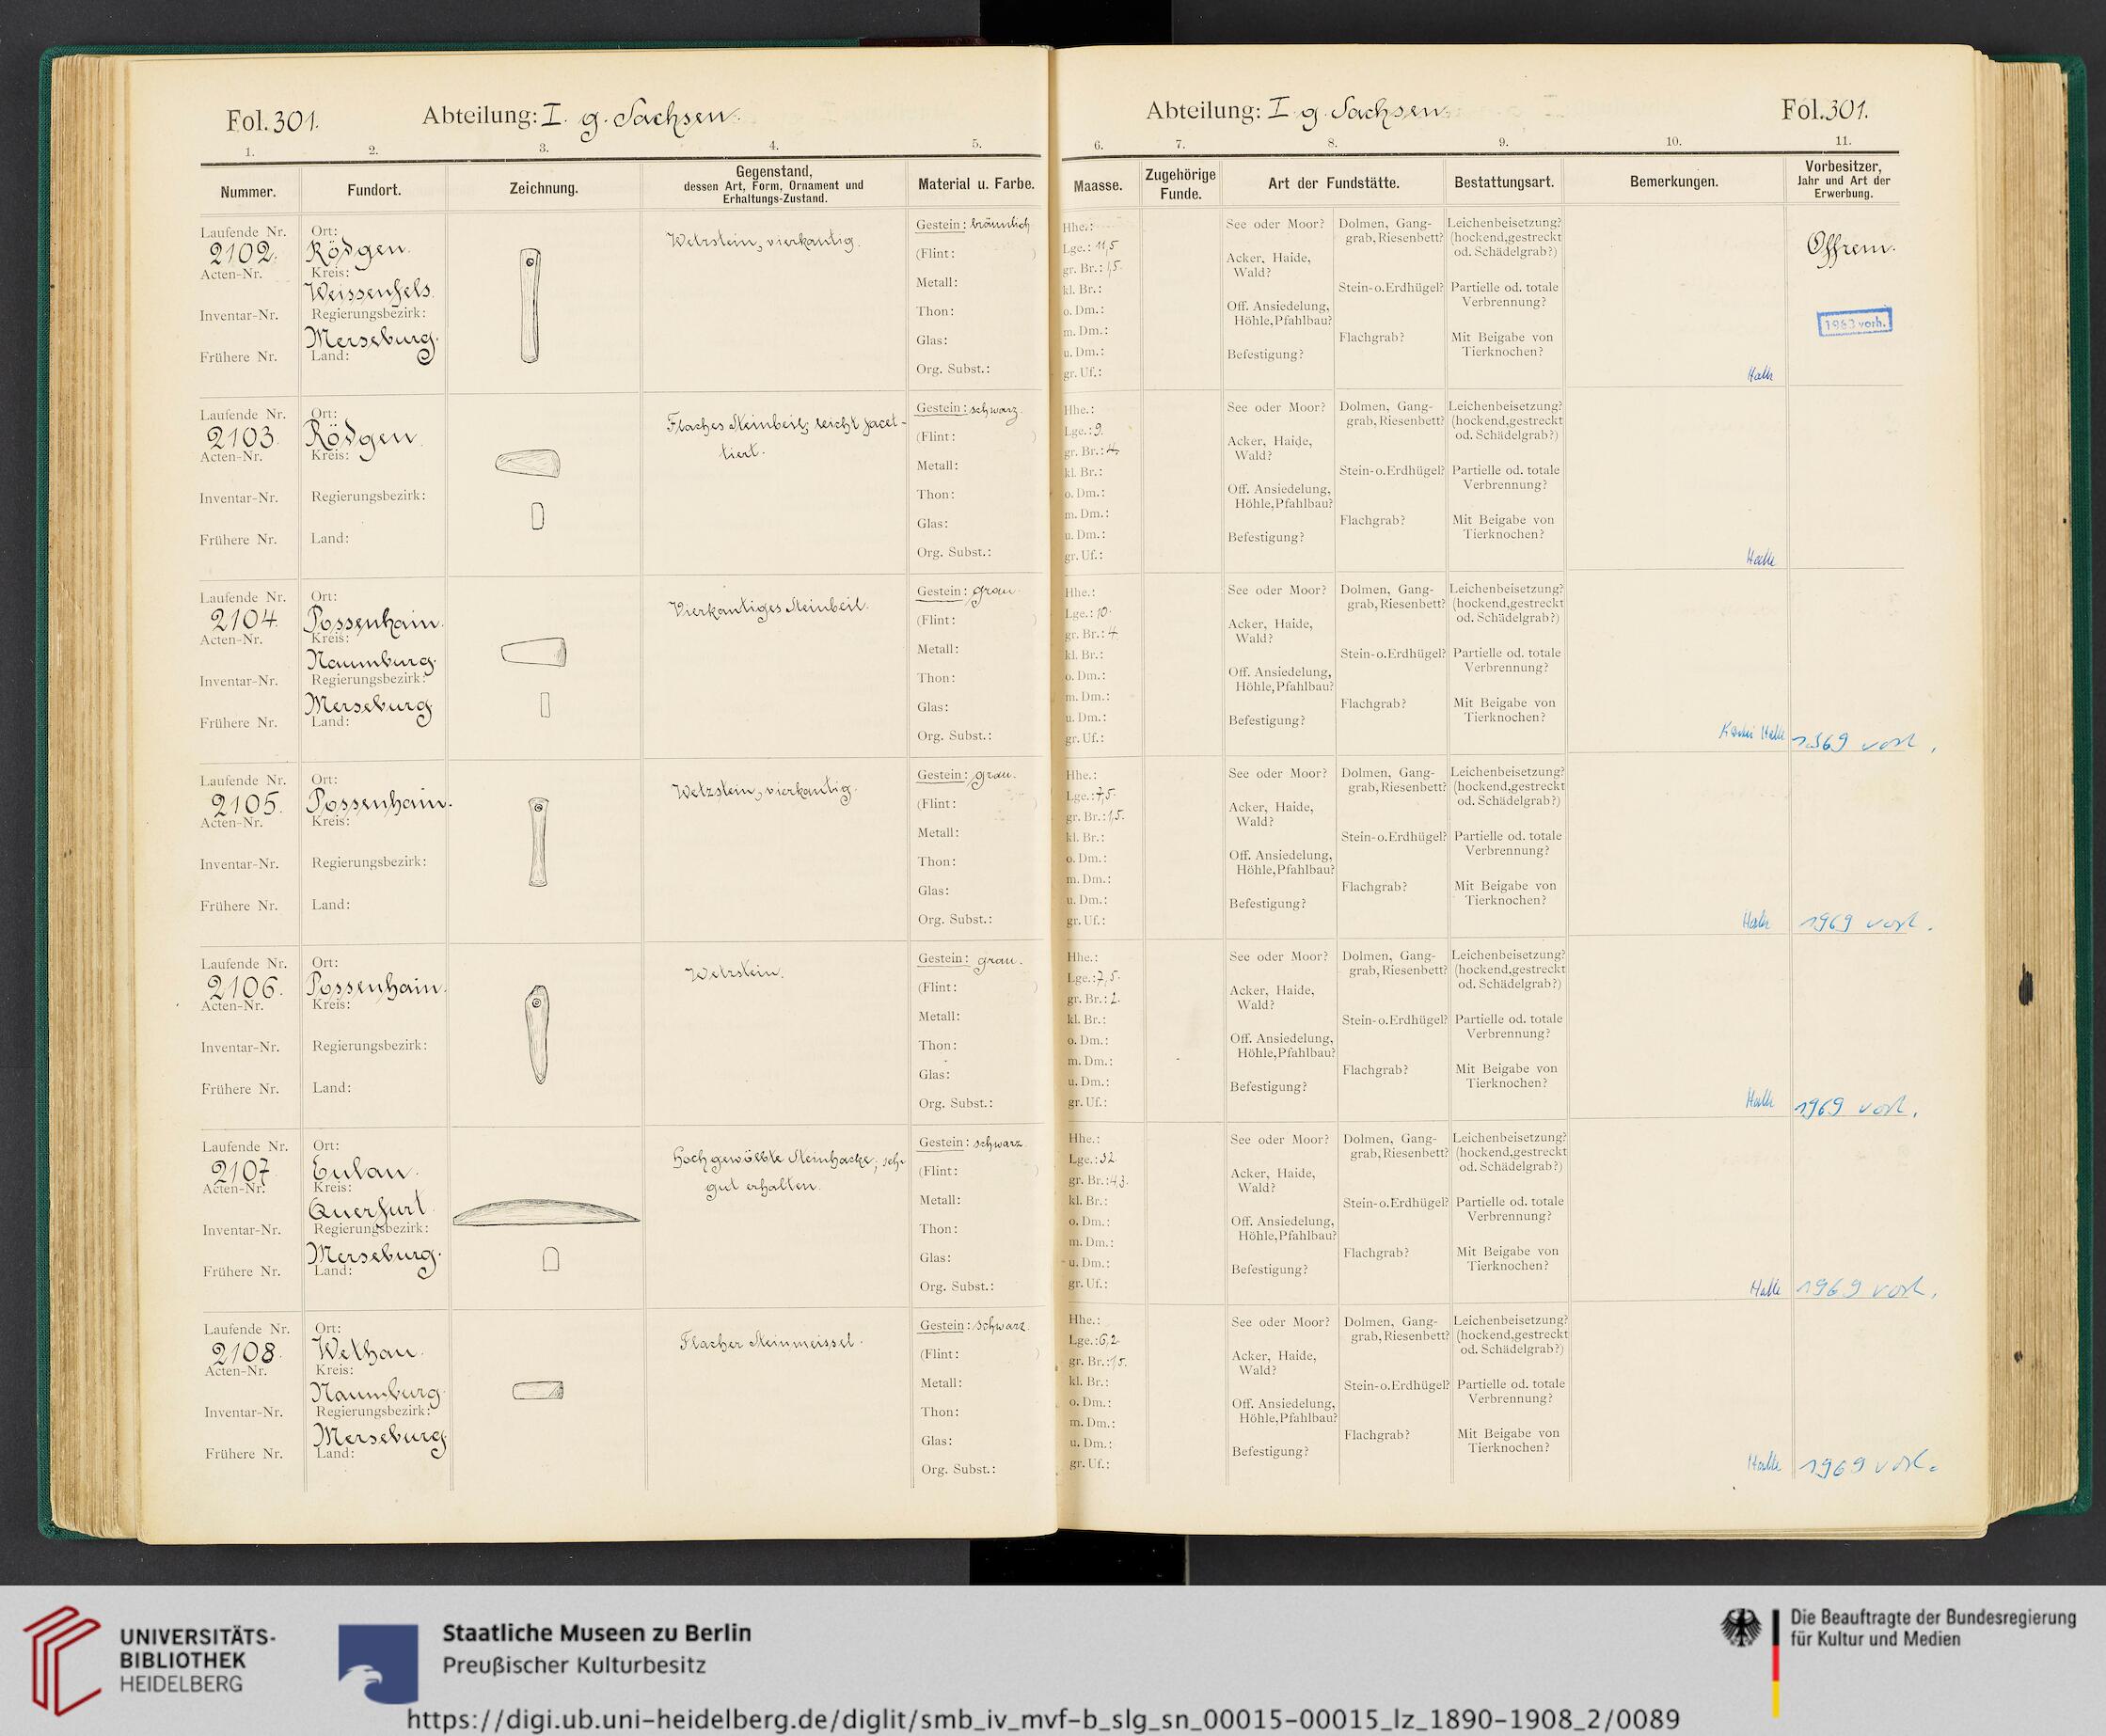 Fol. 301.
Abteilung: I. g. Sachsen.
1. 2. 3. 4. 5.
Nummer. Fundort. Zeichnung. Gegenstand, dessen Art, Form, Ornament und Erhaltungs-Zustand. Material u. Farbe.
Laufende Nr. 2102.
Acten-Nr.
Inventar-Nr.
Frühere Nr.
Ort: Rödgen.
Kreis: Weissenfels.
Regierungsbezirk: Merseburg.
Land:
Wetzstein, vierkantig.
Gestein: bräunlich
(Flint: )
Metall:
Thon:
Glas:
Org. Subst.:
Laufende Nr. 2103.
Acten-Nr.
Inventar-Nr.
Frühere Nr.
Ort: Rödgen.
Kreis:
Regierungsbezirk:
Land:
Flaches Steinbeil; leicht facet-
tiert.
Gestein: schwarz.
(Flint: )
Metall:
Thon:
Glas:
Org. Subst.:
Laufende Nr. 2104.
Acten-Nr.
Inventar-Nr.
Frühere Nr.
Ort: Possenhain.
Kreis: Naumburg.
Regierungsbezirk: Merseburg.
Land:
Vierkantiges Steinbeil.
Gestein: grau.
(Flint: )
Metall:
Thon:
Glas:
Org. Subst.:
Laufende Nr. 2105.
Acten-Nr.
Inventar-Nr.
Frühere Nr.
Ort: Possenhain.
Kreis:
Regierungsbezirk:
Land:
Wetzstein, vierkantig.
Gestein: grau.
(Flint: )
Metall:
Thon:
Glas:
Org. Subst.:
Laufende Nr. 2106.
Acten-Nr.
Inventar-Nr.
Frühere Nr.
Ort: Possenhain.
Kreis:
Regierungsbezirk:
Land:
Wetzstein.
Gestein: grau.
(Flint: )
Metall:
Thon:
Glas:
Org. Subst.:
Laufende Nr. 2107.
Acten-Nr.
Inventar-Nr.
Frühere Nr.
Ort: Eulau.
Kreis: Querfurt.
Regierungsbezirk: Merseburg.
Land:
Hochgewölbte Steinhacke; sehr
gut erhalten.
Gestein: schwarz.
(Flint: )
Metall:
Thon:
Glas:
Org. Subst.:
Laufende Nr. 2108.
Acten-Nr.
Inventar-Nr.
Frühere Nr.
Ort: Wethau.
Kreis: Naumburg.
Regierungsbezirk: Merseburg.
Land:
Flacher Steinmeissel.
Gestein: schwarz.
(Flint: )
Metall:
Thon:
Glas:
Org. Subst.:
Abteilung: I. g. Sachsen.
Fol. 301.
6. 7. 8. 9. 10. 11.
Maasse. Zugehörige Funde. Art der Fundstätte. Bestattungsart. Bemerkungen. Vorbesitzer, Jahr und Art der Erwerbung.
Hhe.:
Lge.: 11,5
gr. Br.: 1,5.
kl. Br.:
o. Dm.:
m. Dm.:
u. Dm.:
gr. Uf.:
See oder Moor?
Acker, Haide,
Wald?
Off. Ansiedelung,
Höhle, Pfahlbau?
Befestigung?
Dolmen, Gang-
grab, Riesenbett?
Stein- o. Erdhügel?
Flachgrab?
Leichenbeisetzung?
(hockend, gestreckt
od. Schädelgrab?)
Partielle od. totale
Verbrennung?
Mit Beigabe von
Tierknochen?
Halle
1963 vorh.
Hhe.:
Lge.: 9.
gr. Br.: 4,
kl. Br.:
o. Dm.:
m. Dm.:
u. Dm.:
gr. Uf.:
See oder Moor?
Acker, Haide,
Wald?
Off. Ansiedelung,
Höhle, Pfahlbau?
Befestigung?
Dolmen, Gang-
grab, Riesenbett?
Stein- o. Erdhügel?
Flachgrab?
Leichenbeisetzung?
(hockend, gestreckt
od. Schädelgrab?)
Partielle od. totale
Verbrennung?
Mit Beigabe von
Tierknochen?
Halle
Hhe.:
Lge.: 10.
gr. Br.: 4.
kl. Br.:
o. Dm.:
m. Dm.:
u. Dm.:
gr. Uf.:
See oder Moor?
Acker, Haide,
Wald?
Off. Ansiedelung,
Höhle, Pfahlbau?
Befestigung?
Dolmen, Gang-
grab, Riesenbett?
Stein- o. Erdhügel?
Flachgrab?
Leichenbeisetzung?
(hockend, gestreckt
od. Schädelgrab?)
Partielle od. totale
Verbrennung?
Mit Beigabe von
Tierknochen?
Halle
1969 vorh.
Hhe.:
Lge.: 7,5.
gr. Br.: 1,5.
kl. Br.:
o. Dm.:
m. Dm.:
u. Dm.:
gr. Uf.:
See oder Moor?
Acker, Haide,
Wald?
Off. Ansiedelung,
Höhle, Pfahlbau?
Befestigung?
Dolmen, Gang-
grab, Riesenbett?
Stein- o. Erdhügel?
Flachgrab?
Leichenbeisetzung?
(hockend, gestreckt
od. Schädelgrab?)
Partielle od. totale
Verbrennung?
Mit Beigabe von
Tierknochen?
Halle
1969 vorh.
Hhe.:
Lge.: 7,5.
gr. Br.: 2.
kl. Br.:
o. Dm.:
m. Dm.:
u. Dm.:
gr. Uf.:
See oder Moor?
Acker, Haide,
Wald?
Off. Ansiedelung,
Höhle, Pfahlbau?
Befestigung?
Dolmen, Gang-
grab, Riesenbett?
Stein- o. Erdhügel?
Flachgrab?
Leichenbeisetzung?
(hockend, gestreckt
od. Schädelgrab?)
Partielle od. totale
Verbrennung?
Mit Beigabe von
Tierknochen?
Halle
1969 vorh.
Hhe.:
Lge.: 32
gr. Br.: 4,3.
kl. Br.:
o. Dm.:
m. Dm.:
u. Dm.:
gr. Uf.:
See oder Moor?
Acker, Haide,
Wald?
Off. Ansiedelung,
Höhle, Pfahlbau?
Befestigung?
Dolmen, Gang-
grab, Riesenbett?
Stein- o. Erdhügel?
Flachgrab?
Leichenbeisetzung?
(hockend, gestreckt
od. Schädelgrab?)
Partielle od. totale
Verbrennung?
Mit Beigabe von
Tierknochen?
Halle
1969 vorh.
Hhe.:
Lge.: 6,2
gr. Br.: 1,5.
kl. Br.:
o. Dm.:
m. Dm.:
u. Dm.:
gr. Uf.:
See oder Moor?
Acker, Haide,
Wald?
Off. Ansiedelung,
Höhle, Pfahlbau?
Befestigung?
Dolmen, Gang-
grab, Riesenbett?
Stein- o. Erdhügel?
Flachgrab?
Leichenbeisetzung?
(hockend, gestreckt
od. Schädelgrab?)
Partielle od. totale
Verbrennung?
Mit Beigabe von
Tierknochen?
Halle
1969 vorh.
UNIVERSITÄTS-
BIBLIOTHEK
HEIDELBERG
Staatliche Museen zu Berlin
Preußischer Kulturbesitz
Die Beauftragte der Bundesregierung
für Kultur und Medien
https://digi.ub.uni-heidelberg.de/diglit/smb_iv_mvf-b_slg_sn_00015-00015_lz_1890-1908_2/0089